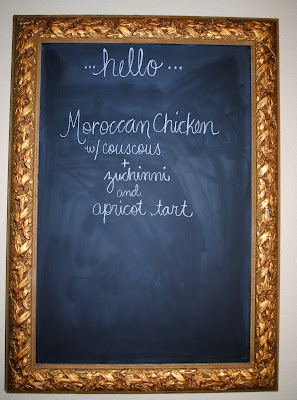 ... hello ...
Moroccan Chicken
w/ couscous
+
zuchinni
and
apricot tart